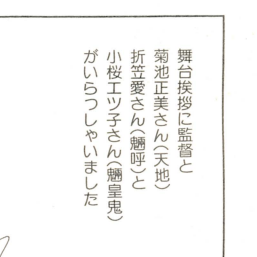 舞台挨拶に監督と
菊池正美さん(天地)
折笠愛さん(魎呼)と
小桜エツ子さん(魎皇鬼)
がいらっしゃいました